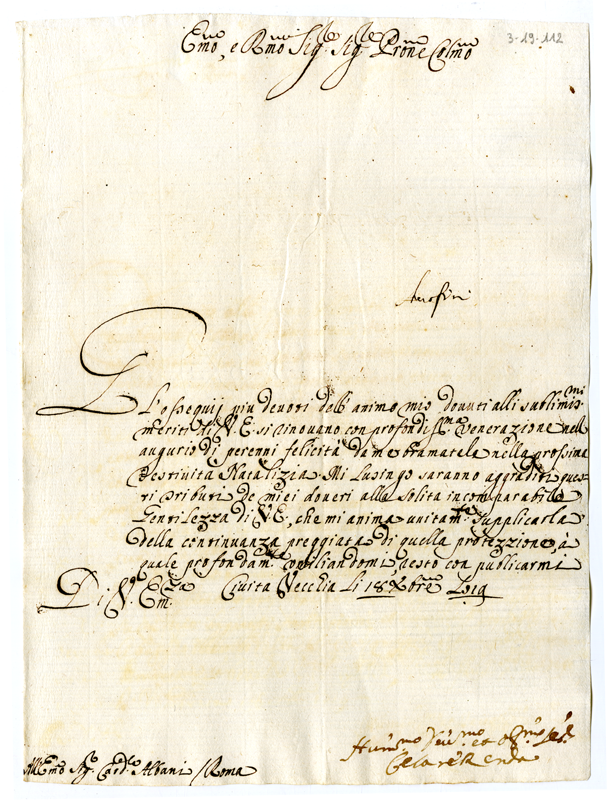 Emo, e Rmo Sig.r Sig.r Prone Colmo
3-19-112
Gl'ossequij piu devoti dell'animo mio dovuti alli sublimis.mi
meriti di V. E. si rinovano con profondiss.ma venerazione nell
augurio di perenni felicità da me bramatele nella prossima
Festività Natalizia. Mi lusingo saranno aggraditi ques-
ti tributi de miei doveri alla solita incomparabile
Gentilezza di V. E., che mi anima unitam.te supplicarla
della continuanza preggiata di quella protezzione, à
quale profondam.te umiliandomi resto con publicarmi
Di V. Em.za Civita Vecchia li 18 Xbre 1719
Hum.mo Dev.mo et Obl.mo
Cesare Renda
All Emo Sig.r Card.le Albani / Roma